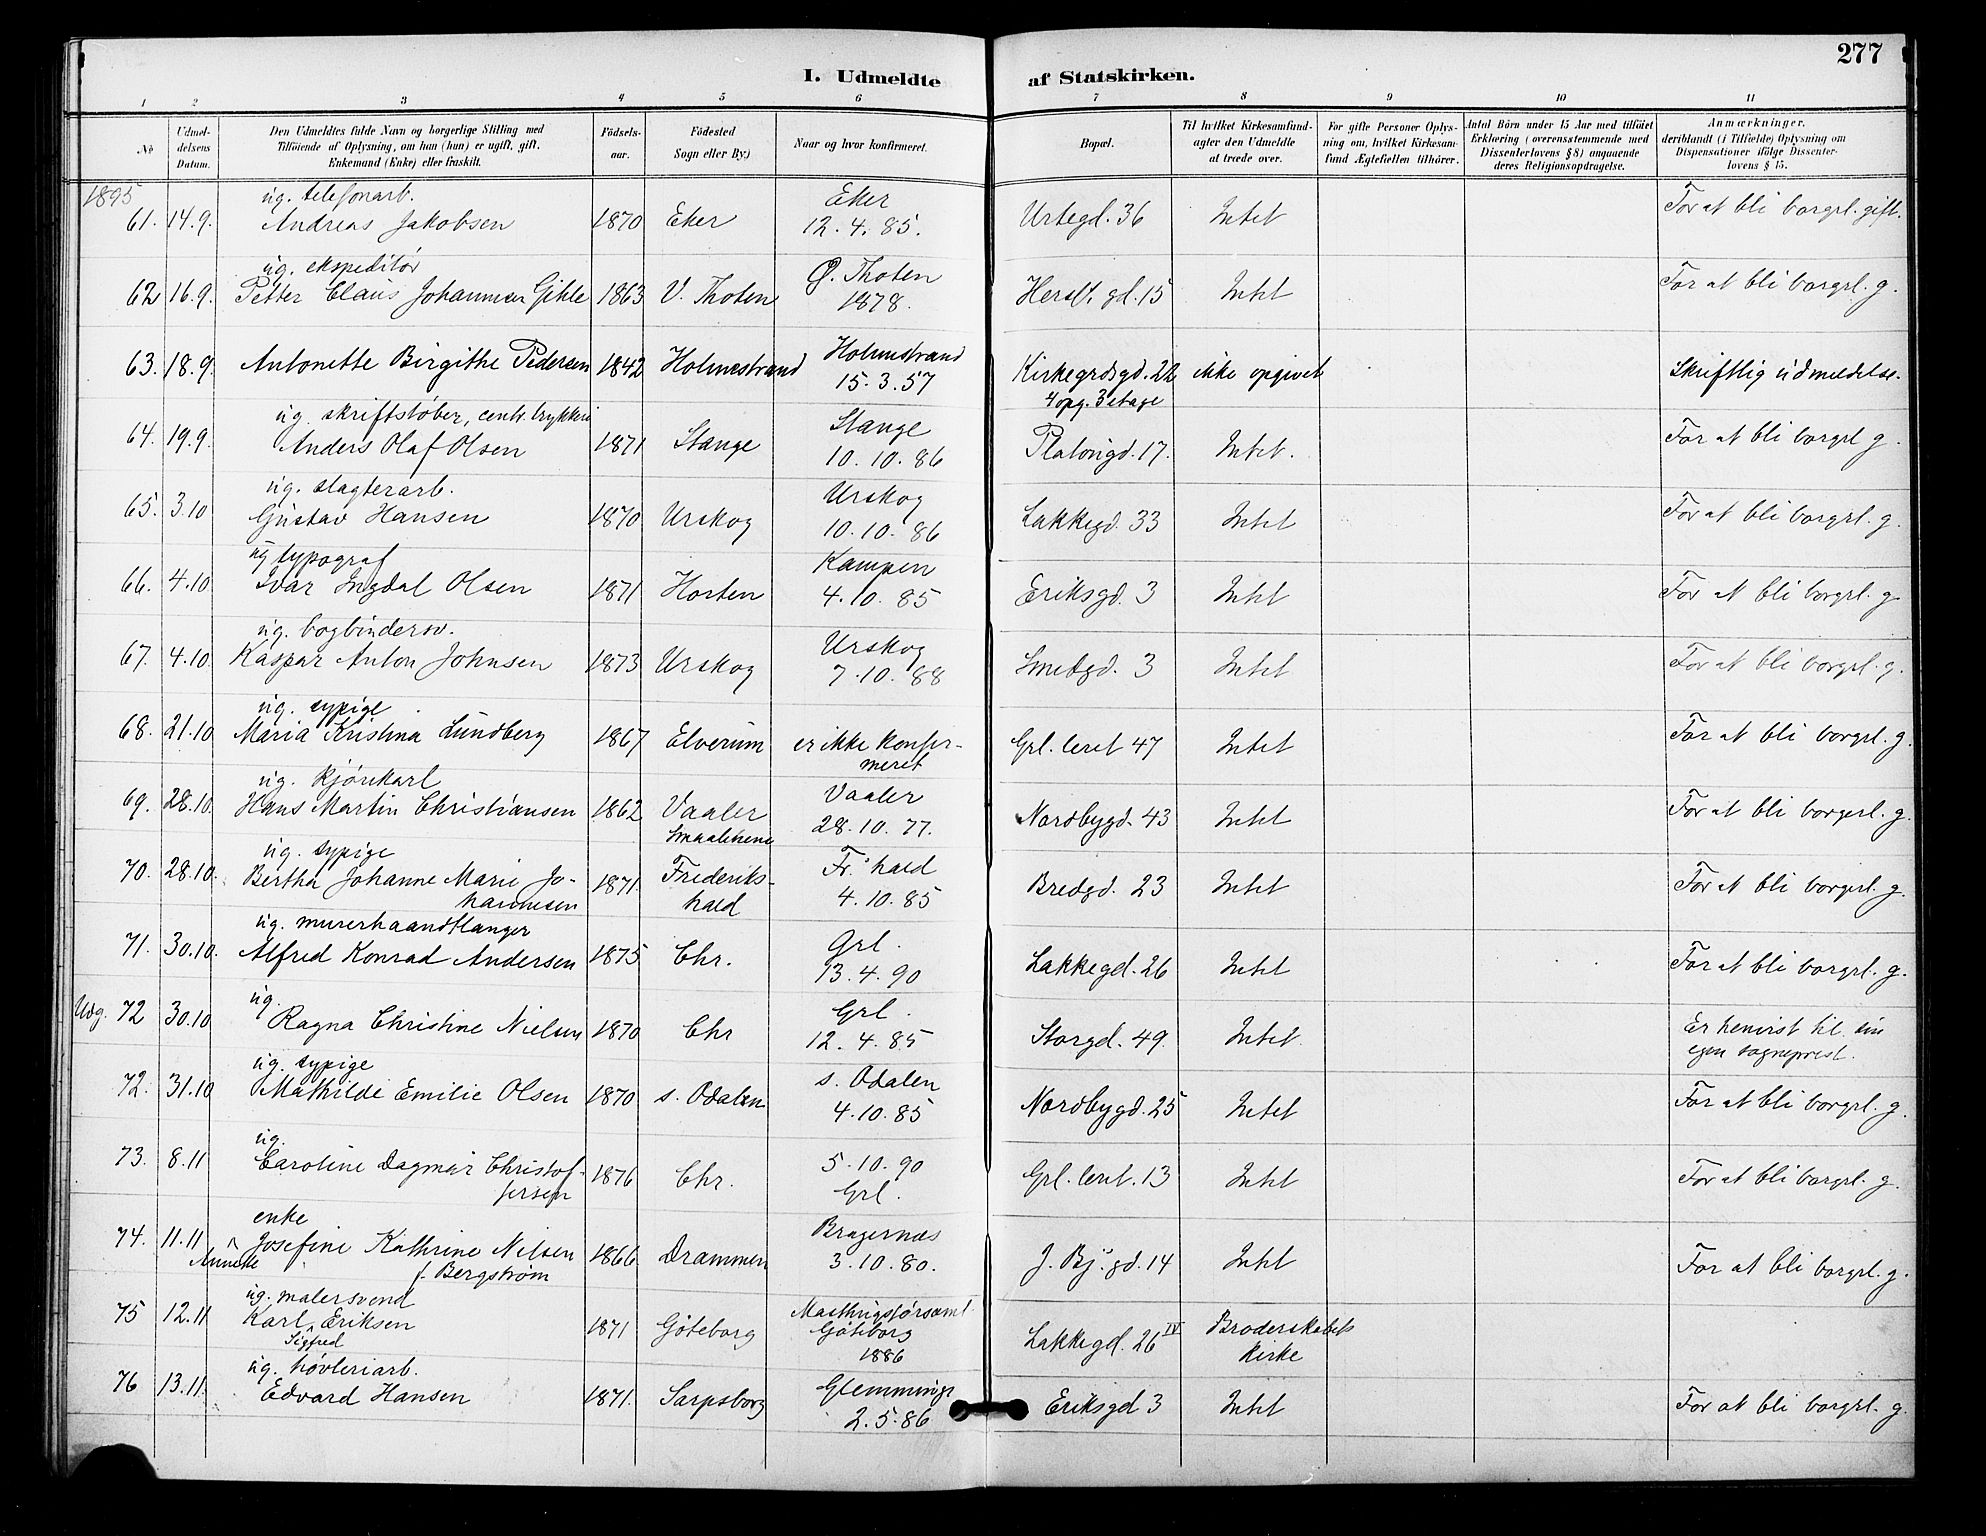 277
I. Udmeldte af Statskirken.
1 2 3 4 5 6 7 8 9 10 11
No
Udmeldelsens Datum.
Den Udmeldtes fulde Navn og borgerlige Stilling med Tilföiende af Oplysning, om han (hun) er ugift, gift, Enkemand (Enke) eller fraskilt.
Födselsaar.
Födested Sogn eller By.)
Naar og hvor konfirmeret.
Bopæl.
Til hvilket Kirkesamfund agter den Udmeldte at træde over.
For gifte Personer Oplysning om, hvilket Kirkesamfund Ægtefællen tilhörer.
Antal Börn under 15 Aar med tilföiet Erklæring (overensstemmende med Dissenterlovens § 8) angaaende deres Religionsopdragelse.
Anmærkninger, deriblandt (i Tilfælde) Oplysning om Dispensationer ifölge Dissenterlovens § 15.
1895
ug. telefonarb.
61. 14.9. Andreas Jakobsen 1870 Eker Eker 12.4.85. Urtegd. 36 Intet For at bli borgrl. gift.
ug. ekspeditør
62 16.9. Petter Claus Johannesen Gihle 1863 V. Thoten Ø. Thoten 1878. Hersl. gd. 15 Intet For at bli borgrl. g.
63. 18.9. Antonette Birgithe Pedersen 1842 Holmestrand Holmestrand 15.3.57 Kirkegrdsgd. 22 4 opg. 3 etage ikke opgivet Skriftlig udmeldelse.
ug. skriftstøber, centr. trykkeri
64. 19.9. Anders Olaf Olsen 1871 Stange Stange 10.10.86 Platougd. 17. Intet. For at bli borgrl g.
ug. slagterarb.
65. 3.10 Gustav Hansen 1870 Urskog Urskog 10.10.86 Lakkegd. 33 Intet For at bli borgrl. g.
ug typograf
66. 4.10 Ivar Ingdal Olsen 1871 Horten Kampen 4.10.85 Eriksgd. 3 Intet For at bli borgrl. g
ug. bogbindersv.
67. 4.10. Kaspar Anton Johnsen 1873 Urskog Urskog 7.10.88 Smedgd. 3 Intet For at bli borgrl. g.
ug. sypige
68. 21.10 Maria Kristina Lundberg 1867 Elverum er ikke konfirmeret Grl. leret 47 Intet For at bli borgrl. g.
ug. kjørekarl
69. 28.10. Hans Martin Christiansen 1862 Vaaler Smaalenene Vaaler 28.10.77. Nordbygd. 43 Intet For at bli borgerl. g.
ug. sypige
70. 28.10. Bertha Johanne Marie Johannesen 1871 Frederikshald Fr.hald 4.10.85 Bredgd. 23 Intet For at bli borgerl. g.
ug. murerhaandtlanger
71. 30.10. Alfred Konrad Andersen 1875 Chr. Grl. 13.4.90 Lakkegd. 26 Intet For at bli borgrl. g.
ug.
Udg. 72 30.10 Ragna Christine Nielsen 1870 Chr Grl. 12.4.85 Storgd. 49. Intet. Er henvist til sin egen sogneprest.
ug. sypige
72. 31.10 Mathilde Emilie Olsen 1870 s. Odalen s. Odalen 4.10.85 Nordbygd. 25 Intet For at bli borgrl. g.
ug.
73. 8.11 Caroline Dagmar Christofersen 1876 Chr. 5.10.90 Grl. Grl. leret. 13 Intet For at bli borgrl. g.
enke
74. 11.11 Josefine Annette Kathrine Nilsen f. Bergstrøm 1866 Drammen Bragernæs 3.10.80. J. Bj. gd. 14 Intet For at bli borgrl. g.
ug. malersvend
75 12.11 Karl Sigfred Eriksen 1871 Göteborg Masthugsförsaml. Göteborg 1886 Lakkegd. 26 IV Broderskabets kirke
ug. høvleriarb.
76 13.11. Edvard Hansen 1871. Sarpsborg Glemminge 2.5.86 Eriksgd 3 Intet For at bli borgrl. g.